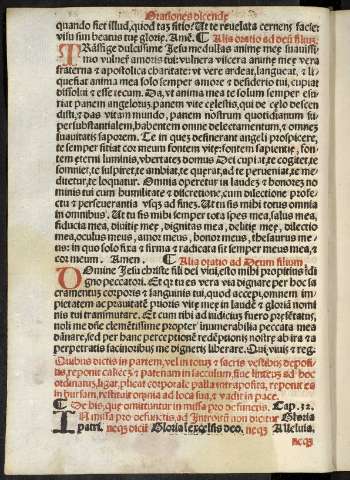 Orationes dicende
quando fiet illud, quod tam sitio: Ut te reuelata cernens facie:
visu sim beatus tue glorie. Amē. ¶ Alia oratio ad deū filium.
TRāsfige dulcissime Iesu medullas anime mee suauissi
mo vulnere amoris tui: vulnera viscera anime mee vera
fraterna & apostolica charitate: vt vere ardeat, langueat, & li
quefiat anima mea solo semper amore & desiderio tui, cupiat
dissolui & esse tecum. Da, vt anima mea te solum semper esu-
riat panem angelorum, panem vite celestis, qui de celo descen
disti, & das vitam mundo, panem nostrum quotidianum su
persubstantialem, habentem omne delectamentum, & omnem
suauitatis saporem. Te in quem desiderant angeli prospicere,
te semper sitiat cor meum fontem vite: fontem sapientie, fon-
tem eterni luminis, vbertatem domus Dei: cupiat, te cogitet, te
somniet, te suspiret, te ambiat, te querat, ad te perueniat, te me-
ditetur, te loquatur. Omnia operetur in laudem & honorem no
minis tui cum humilitate & discretione, cum dilectione profe-
ctu & perseuerantia vsq3 ad finem. Ut tu sis mihi totus omnia
in omnibus. Ut tu sis mihi semper tota spes mea, salus mea,
fiducia mea, diuitie mee, dignitas mea, delitie mee, dilectio
mea, oculus meus, amor meus, honor meus, thesaurus me-
us: in quo solo fixa & firma & radicata sit semper mens mea, &
cor meum. Amen. ¶ Alia oratio ad Deum filium.
DOmine Iesu christe fili dei viui, esto mihi propitius idi
gno peccatori. Et qr tu es vera via dignare per hoc sa
cramentum corporis & sanguinis tui, quod accepi, omnem im
pietatem ac prauitatē prioris vite mee in laudē & gloriā nomi
nis tui transmutare. Et cum tibi ad iudicium fuero presētatus,
noli me dñe clemētissime propter inumerabilia peccata mea
dānare, sed per hanc perceptionē redēptionis nostre ab ira & a
perpetratis facinoribus me digneris liberare. Qui, viuis & reg.
Quibus dictis in partem, vel in totum & sacris vestibus deposi-
tis, reponit calicem & patenam in sacculum, siue linteum ad hoc
ordinatum, ligat, plicat corporale palla intraposita, reponit es
in bursam, restituit omnia ad loca sua, & vadit in pace.
¶ De his, que omittuntur in missa pro defunctis. Cap. 32.
IN missa pro defunctis, ad Introitū non dicitur Gloria
patri. neq3 dicit Gloria in excelsis deo. neq3 Alleluia.
neq3